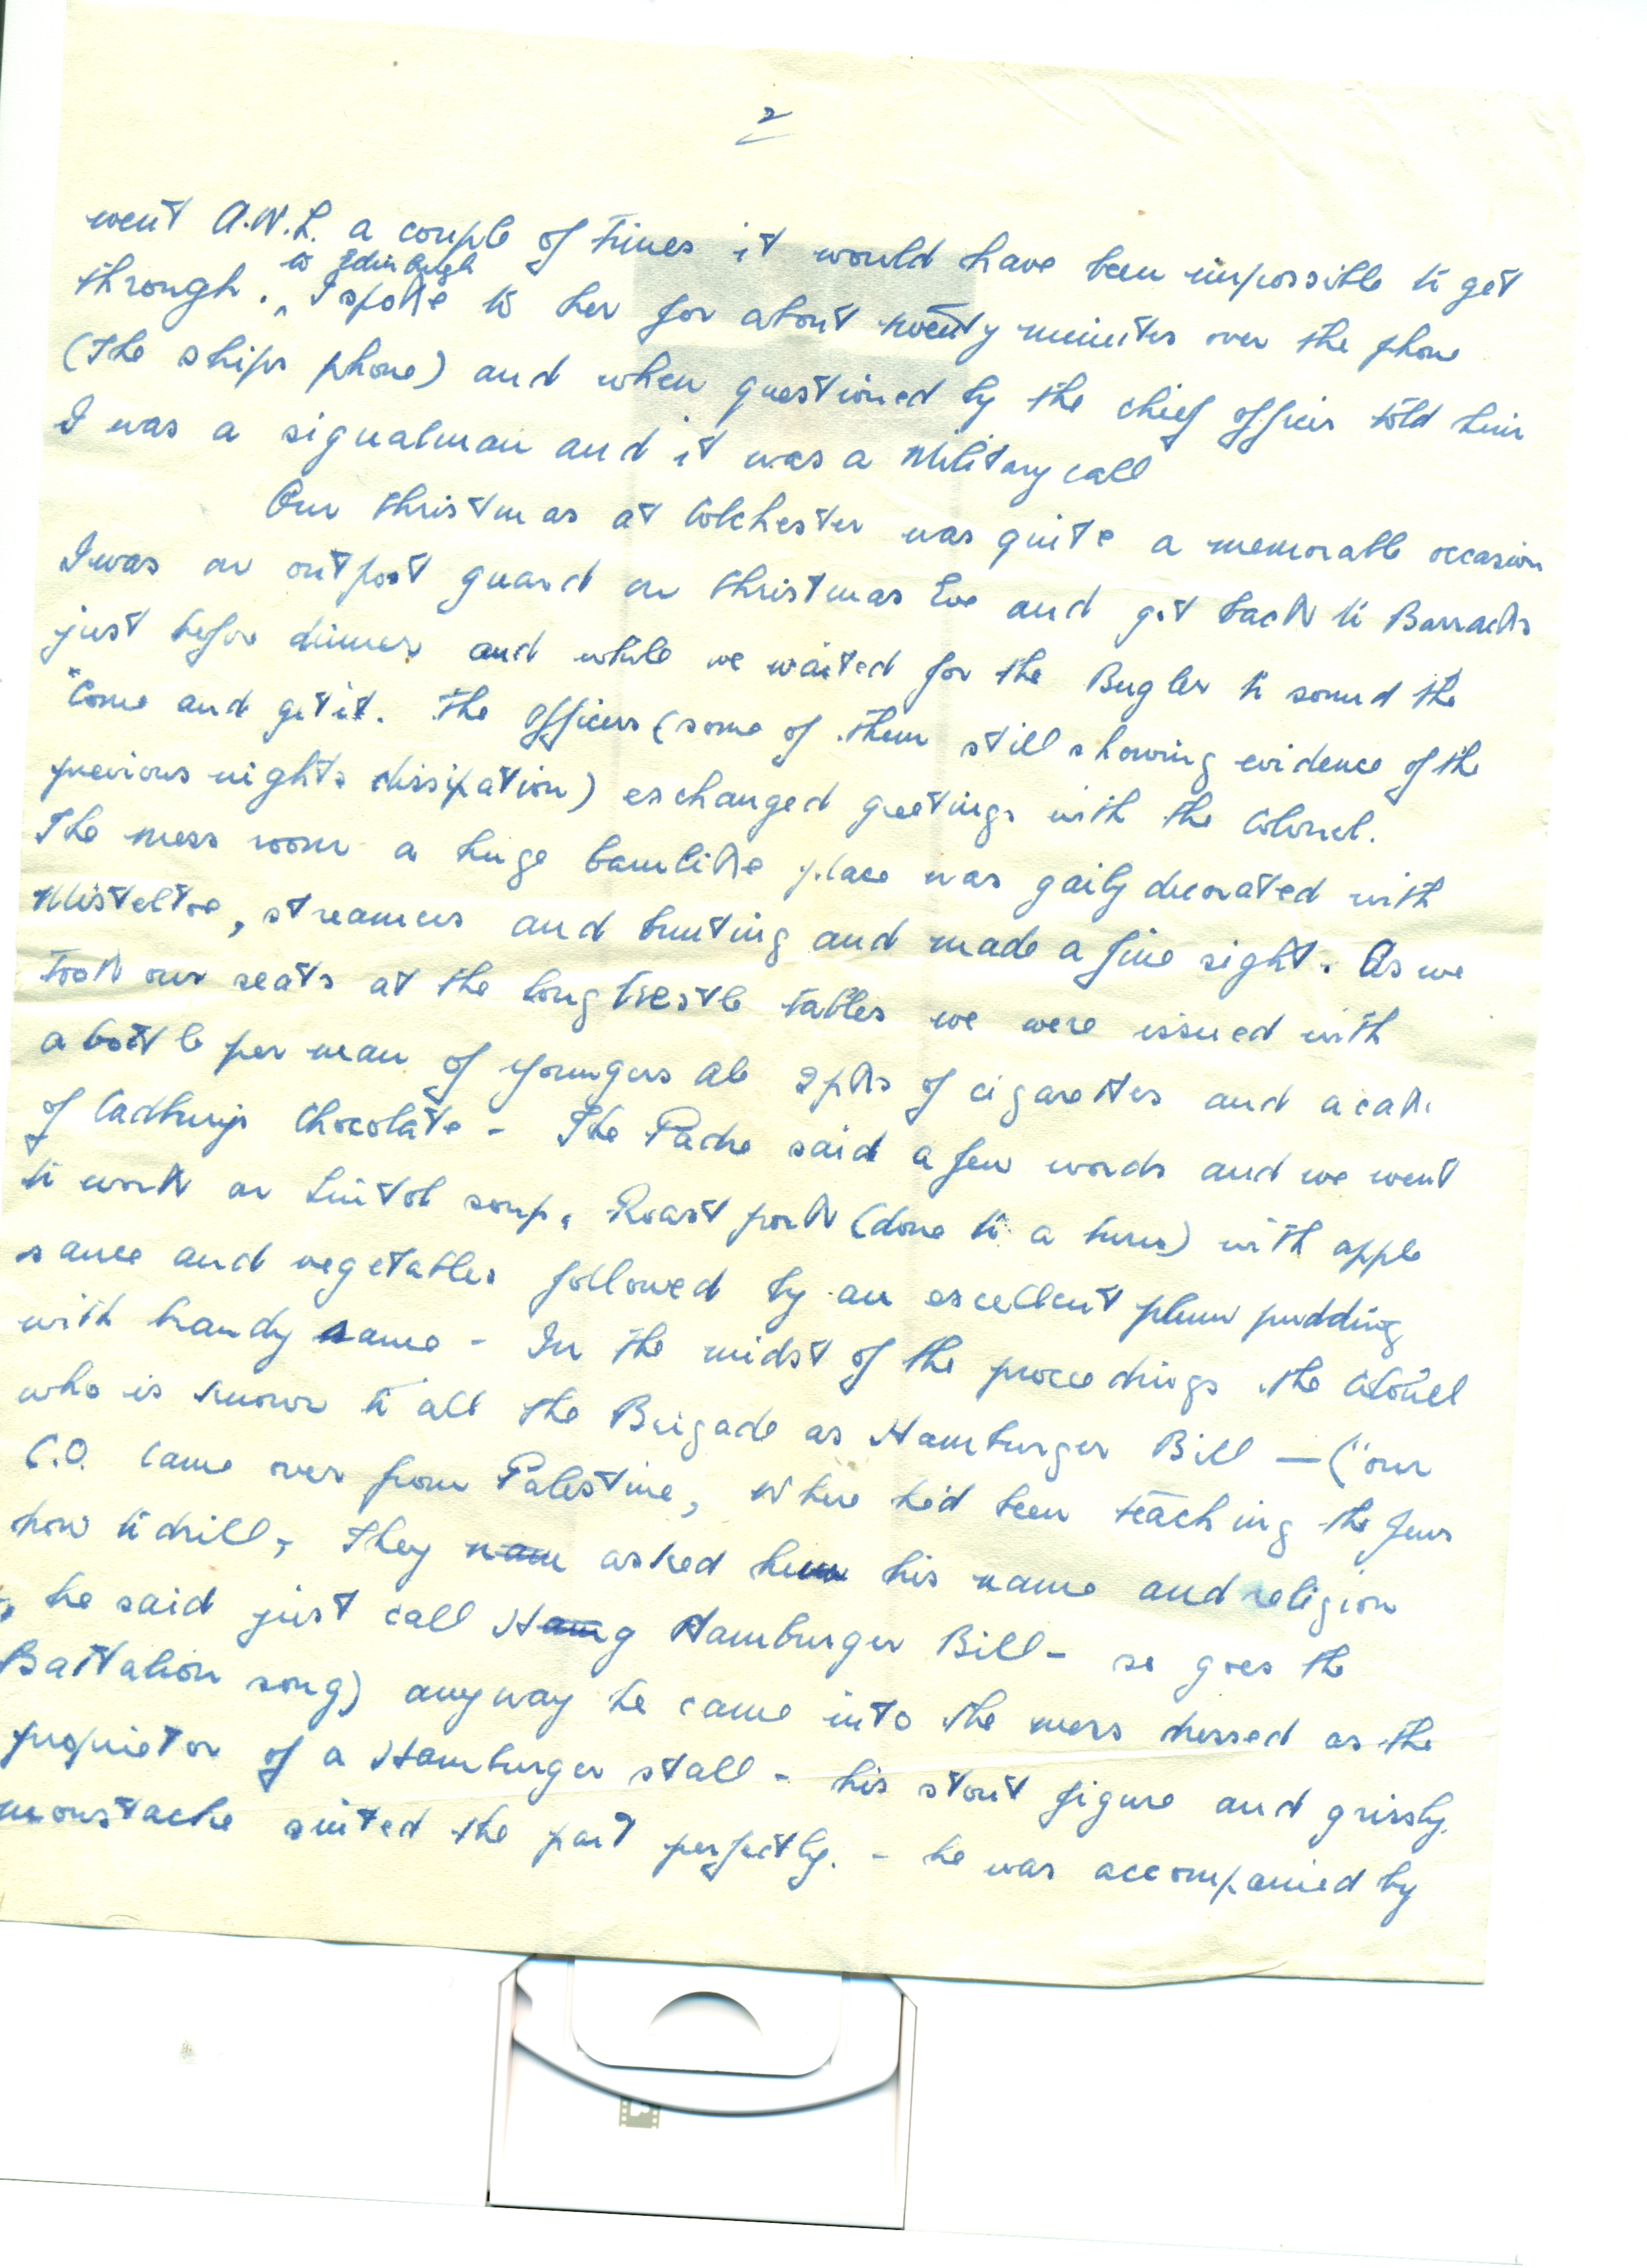 2
went A.W.L. a couple of times it would have been impossible to get
to Edinburgh
through. ^ I spoke to her for about twenty minutes over the phone
(the ships phone) and when questioned by the chief officer told him
I was a signalman and it was a Military call
Our Christmas at Colchester was quite a memorable occasion
I was on outpost guard on Christmas Eve and got back to Barracks
just before dinner and while we waited for the Bugler to sound the
"Come and get it. The officers (some of them still showing evidence of the
previous nights dissipation) exchanged greetings with the Colonel.
The mess room a huge barnlike place was gaily decorated with
Misteltoe, streamers and bunting and made a fine sight. As we
took our seats at the long trestle tables we were issued with
a bottle per man of youngers ale 2 pks of cigarettes and a cake
of Cadburys Chocolate - The Padre said a few words and we went
to work on soup, Roast pork (done to a turn) with apple
sauce and vegetables followed by an excellent plum pudding
with brandy sauce - In the midst of the proceedings the Colonel
who is known to all the Brigade as Hamburger Bill — ("our
C.O. came over from Palestine, where he'd been teaching the Jews
how to drill, They nam asked him his name and religion
he said just call Hamg Hamburger Bill - so goes the
Battalion song) anyway he came into the mess dressed as the
proprietor of a Hamburger stall - his stout figure and grissly
moustache suited the part perfectly. - he was accompanied by